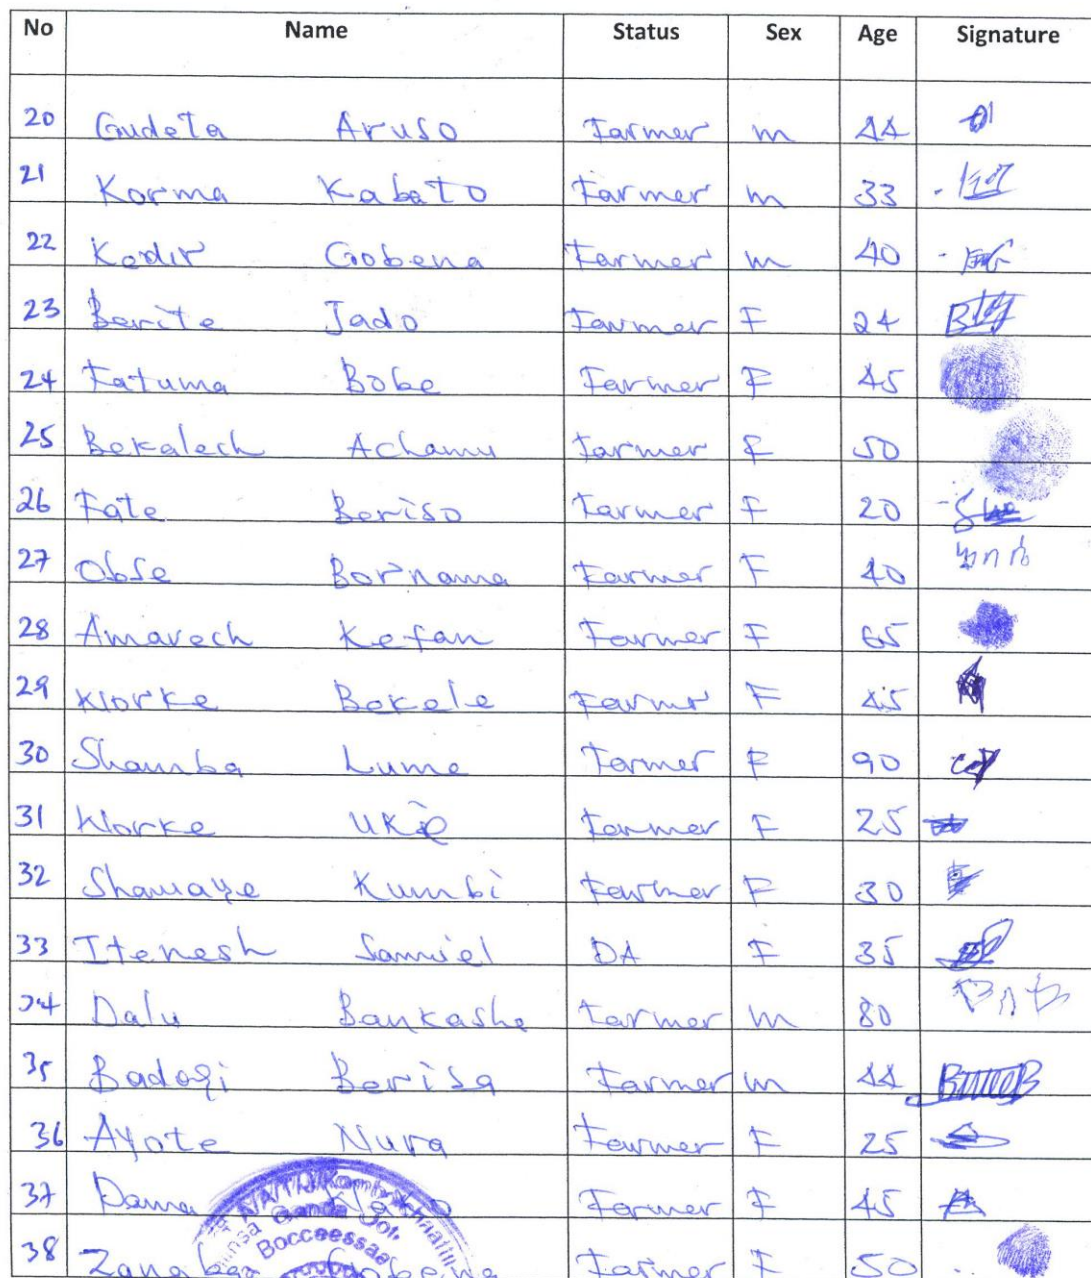 No Name Status Sex Age Signature
20 Gudeta Aruso Farmer m 44
21 Korma Kabato Farmer m 33
22 Kedir Gobena Farmer m 40
23 Berite Jado Farmer F 24
24 Fatuma Bobe Farmer F 45
25 Bekalech Achamu Farmer F 50
26 Fate Beriso Farmer F 20
27 Obse Bornama Farmer F 40
28 Amarech Kefan Farmer F 65
29 Worke Bekele Farmr F 45
30 Shamba Lume Farmer F 90
31 Worke UKe Farmer F 25
32 Shamaye Kumbi Farmer F 30
33 Itenesh Samuel DA F 35
34 Dalu Bankashe Farmer m 80
35 Badogi Berisa Farmer m 44
36 Ayote Nura Farmer F 25
37 Dama Farmer F 45
Ganda
Bocceessaa
38 Zanaba Gobena Farmer F 50